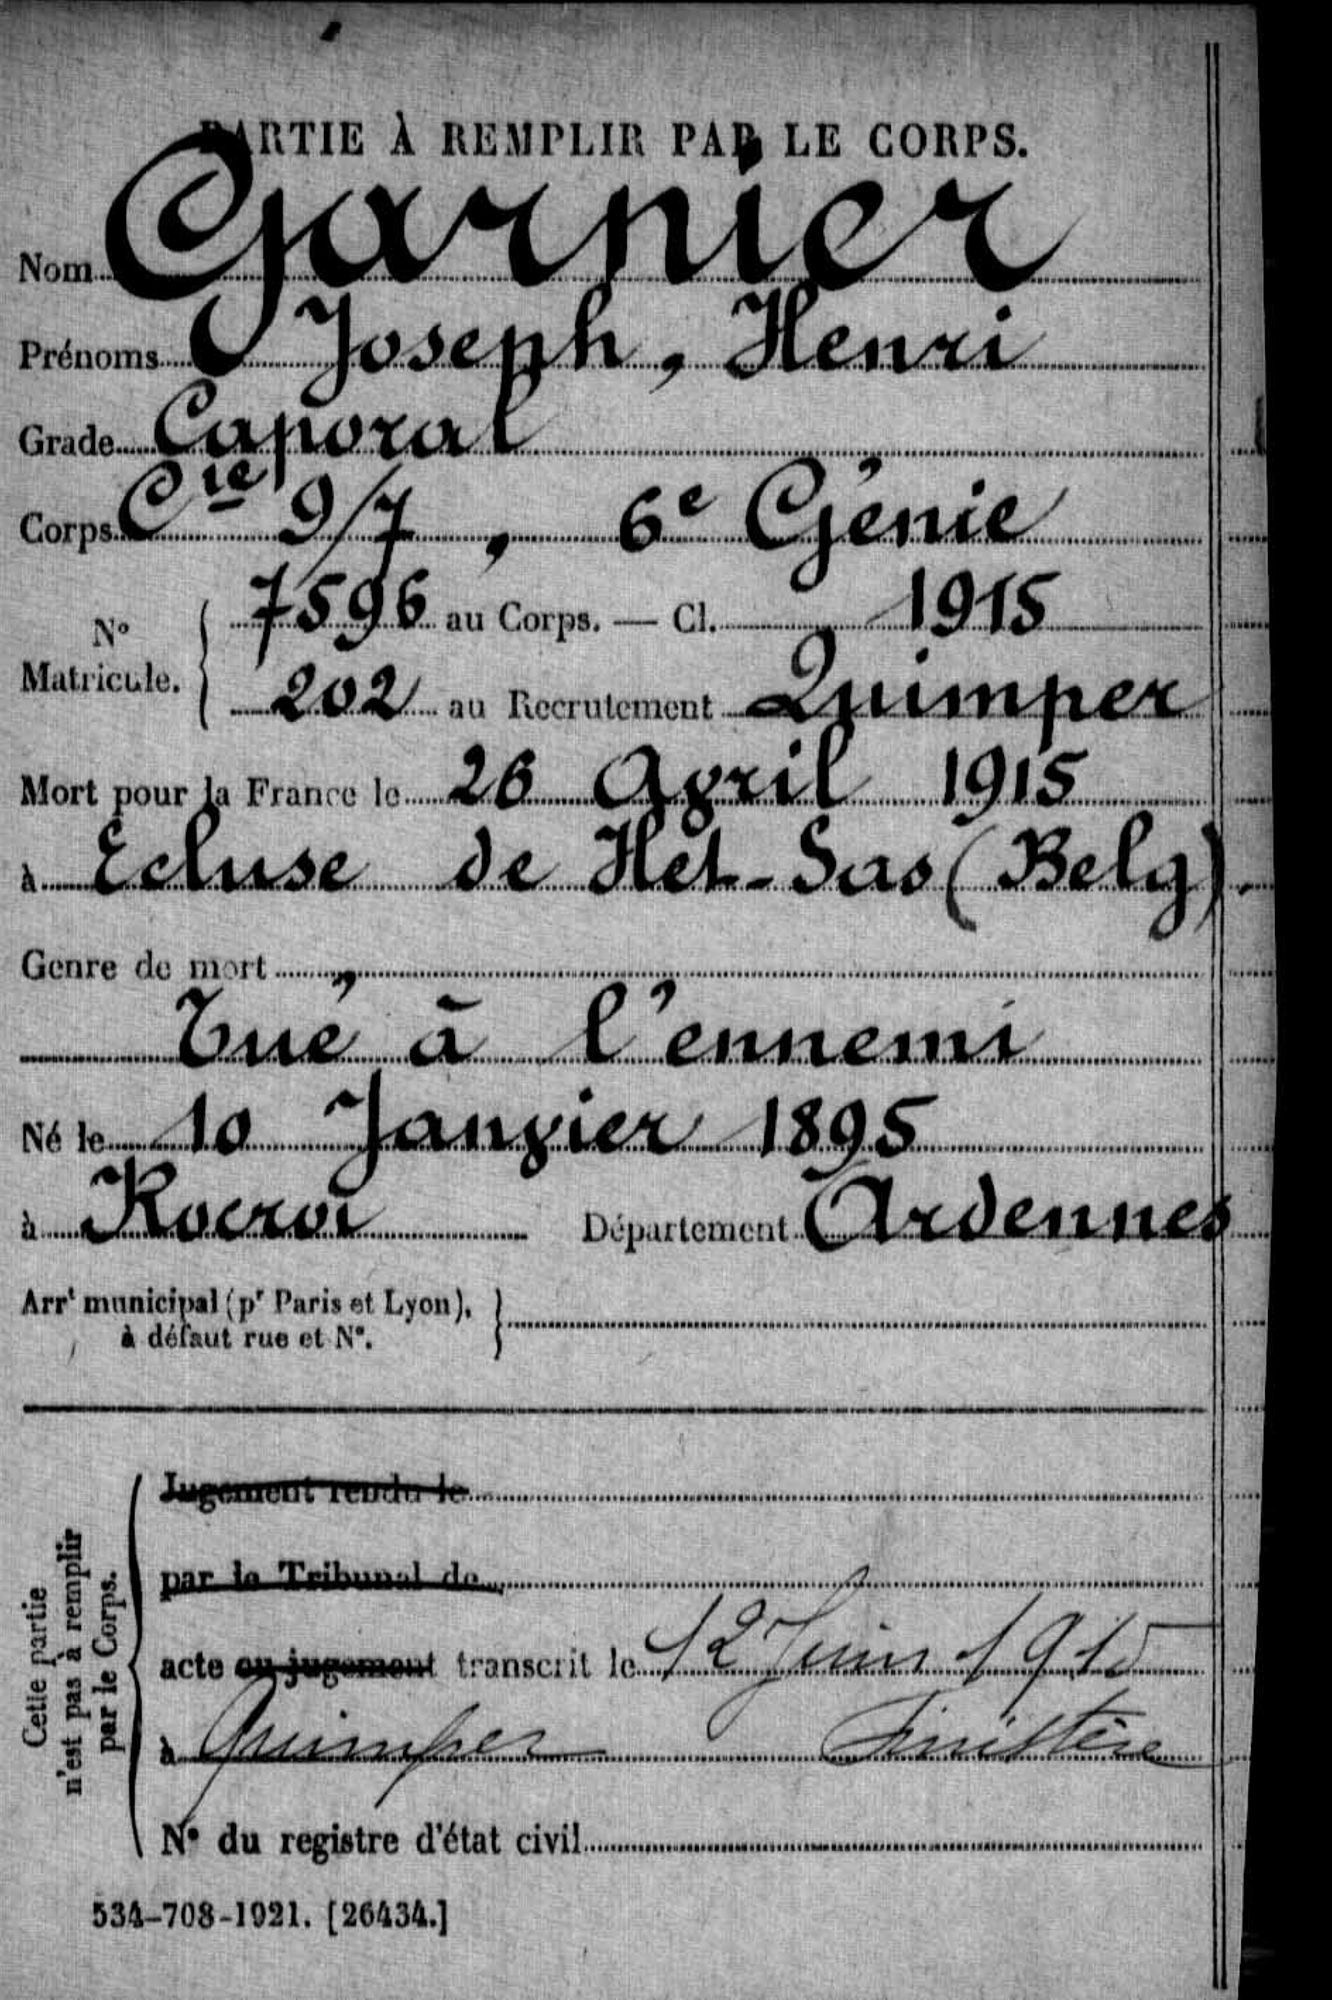 PARTIE À REMPLIR PAR LE CORPS.
Nom Garnier
Prénoms Joseph, Henri
Grade Caporal
Corps Cie 9/7, 6e Génie
N° Matricule. 7596 au Corps. — Cl. 1915
202 au Recrutement Quimper
Mort pour la France le 26 Avril 1915
à Ecluse de Het-Sas (Belg).
Genre de mort
Tué à l'ennemi
Né le 10 Janvier 1895
à Rocroi Département Ardennes
Arrt municipal (pr Paris et Lyon),
à défaut rue et N°.
Cette partie
n'est pas à remplir
par le Corps.
Jugement rendu le
par le Tribunal de
acte ou jugement transcrit le 12 Juin 1915
à Quimper Finistère
N° du registre d'état civil
534-708-1921. [26434.]